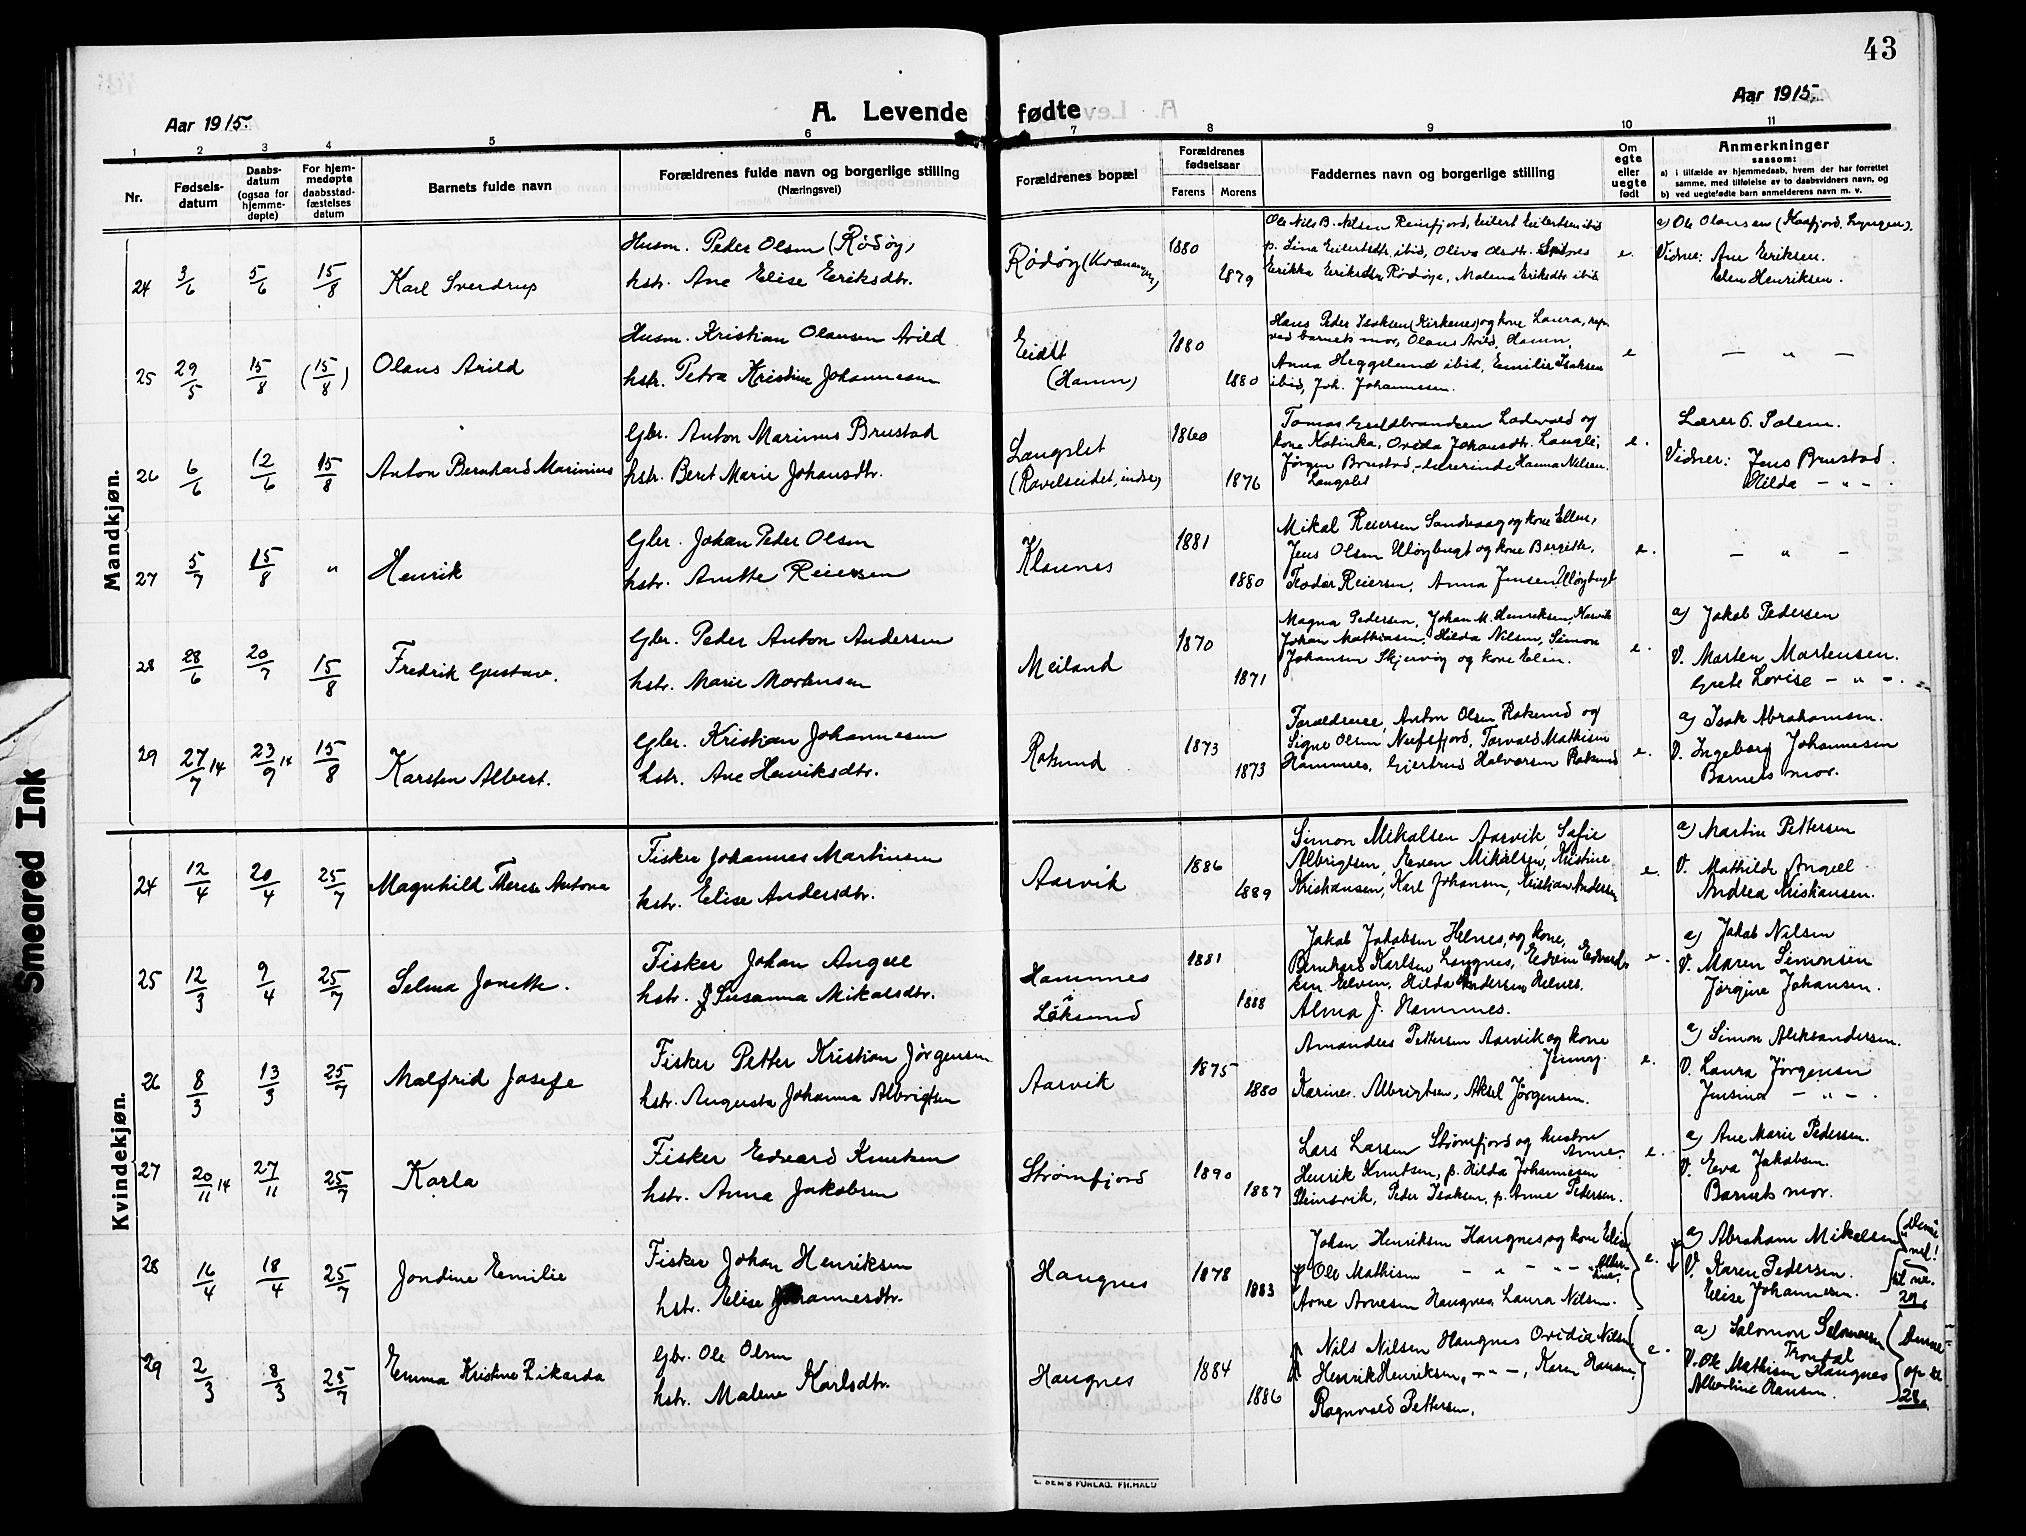 43
Aar 1915.
A. Levende fødte
Aar 1915.
1 2 3 4 5 6 7 8 9 10 11
Nr.
Fødsels-
datum
Daabs-
datum
(ogsaa for
hjemme-
døpte)
For hjem-
medøpte
daabsstad-
fæstelses
datum
Barnets fulde navn
Forældrenes fulde navn og borgerlige stilling
(Næringsvei)
Forældrenes bopæl
Forældrenes
fødselsaar
Farens Morens
Faddernes navn og borgerlige stilling
Om
egte
eller
uegte
født
Anmerkninger
saasom:
a) i tilfælde av hjemmedaab, hvem der har forrettet
samme, med tilføielse av to daabsvidners navn, og
b) ved uegtefødte barn anmelderens navn m. v.
Mandkjøn.
24 3/6 5/6 15/8 Karl Sverdrup
Husm. Peder Olsen (Rødøy)
hstr. Ane Elise Eriksdtr.
Rødøy (Kvænangen)
1880
1879
Ole Nils B. Nilsen Reinfjord, Eilert Eilertsen ibid
p. Lina Eilertsdtr ibid, Oliva Olsdtr. Spilnes
Erikka Eriksdtr Rødøy, Malena Eriksdtr ibid
e.
a) Ole Olansen (Kaafjord, Lyngen).
Vidner: Ane Eriksen.
Elen Henriksen.
25 29/5 15/8 (15/8) Olaus Arild
Husm. Kristian Olausen Arild
hstr. Petra Kristine Johannesen
Eidet
(Hamn)
1880
1880
Hans Peder Isaksen (Kirkenes) og kone Laura, repr.
ved barnets mor, Olaus Arild, Hamn,
Anna Heggelund ibid, Emilie Isaksen
ibid, Joh. Johannessen.
e
— " —
26 6/6 12/6 15/8 Anton Bernhard Marinius
Gbr. Anton Marinus Brustad
hstr. Beret Marie Johansdtr.
Langslet
(Ravelseidet, indre)
1860
1876
Tomas Guldbrandsen Ladevold og
kone Katinka, Ovida Johansdtr. Langlei,
Jørgen Brustad, lærerinde Hanna Nilsen
Langslet
e.
Lærer O. Solem.
Vidner: Jens Brustad.
Hilda — " — .
27 5/7 15/8 " Henrik
Gbr. Johan Peder Olsen
hstr. Anette Reiersen
Klauenes
1881
1880
Mikal Reiersen Sandvaag og kone Ellen,
Jens Olsen Uløybugt og kone Bergitte,
Teodor Reiersen, Anna Jensen Uløybugt
e.
— " —
28 28/6 20/7 15/8 Fredrik Gustav.
Gbr. Peder Anton Andersen
hstr. Marie Mortensen
Meiland
1870
1871
Magna Pedersen, Johan M. Henriksen,
Johan Mathiasen, Hilda Nilsen, Simon
Johansen Skjervøy og kone Elen.
e.
a) Jakob Pedersen
V. Morten Mortensen.
Grete Lovise — " — .
29 27/7 14 23/9 14 15/8 Karsten Albert.
Gbr. Kristian Johannesen
hstr. Ane Henriksdtr.
Rotsund
1873
1873
Forældrene, Anton Olsen Rotsund og
Signe Olsen, Torvald Mathisen
Hammnes, Gjertrud Halvorsen Rotsund
e.
a) Isak Abrahamsen.
V. Ingeborg Johannesen
Barnets mor.
Kvindekjøn.
24 12/4 20/4 25/7 Magnhild Therese Antona
Fisker Johannes Martinsen
hstr. Elise Andersdtr.
Aarvik
1886
1889
Simon Mikalsen Aarvik, Sofie
Albrigtsen, Even Mikalsen, Kristine
Kristiansen, Karl Johansen, Kristian Andersen
e.
a) Martin Pettersen
V. Mathilde Angell
Andrea Kristiansen.
25 12/3 9/4 25/7 Selma Jonette.
Fisker Johan Angell
hstr. Susanna Mikalsdtr.
Hamnnes
i
Løksund
1881
1888
Jakob Jakobsen Helnes, og kone,
Bernhard Karlsen Langnes, Edvin Edvard-
sen Elven, Hilda Andersen Helnes,
Alma J. Hamnnes.
e.
a) Jakob Nilsen
V. Maren Simonsen
Jørgine Johansen.
26 8/3 13/3 25/7 Malfrid Josefe
Fisker Petter Kristian Jørgensen
hstr. Augusta Johanna Albrigtsen
Aarvik
1875
1880
Amandus Pettersen Aarvik og kone
Jenny.
Karine Albrigtsen, Aksel Jørgensen.
e.
a) Simon Aleksandersen.
V. Laura Jørgensen
Jensina — " — .
27 20/11 14 27/11 25/7 Karla
Fisker Edvard Knutsen
hstr. Anna Jakobsen
Strømfjord
1890
1887
Lars Larsen Strømfjord og hustru
Anne,
Henrik Knutsen, p. Hilda Johannesen
Steinsvik, Peder Isaksen, p. Anne Pedersen.
e.
a) Ane Marie Pedersen.
V. Eva Jakobsen.
Barnets mor.
28 16/4 18/4 25/7 Jondine Emilie
Fisker Johan Henriksen
hstr. Elise Johannesdtr.
Haugnes
1878
1883
Johan Henriksen Haugnes, og kone Elise
Ole Mathisen — " — " — Alber-
tine,
Arne Arnesen Haugnes, Laura Nilsen.
e.
a) Abraham Mikalsen
V. Karen Pedersen.
Elise Johannesen.
til nr.
29.
29 2/3 8/3 25/7 Emma Kristine Rikarda
Gbr. Ole Olsen
hstr. Malene Karlsdtr.
Haugnes
1884
1886
Nils Nilsen Haugnes Ovidia Nilsen
Henrik Henriksen, — " —, Karen Hansen,
Ragnvald Pettersen.
e.
a) Salomon Salomonsen
Trondal
V. Ole Mathisen Haugnes
Albertine Hansen.
Denne
op til
28.
Smeared Ink
E. SEM'S FORLAG. FR.HALD